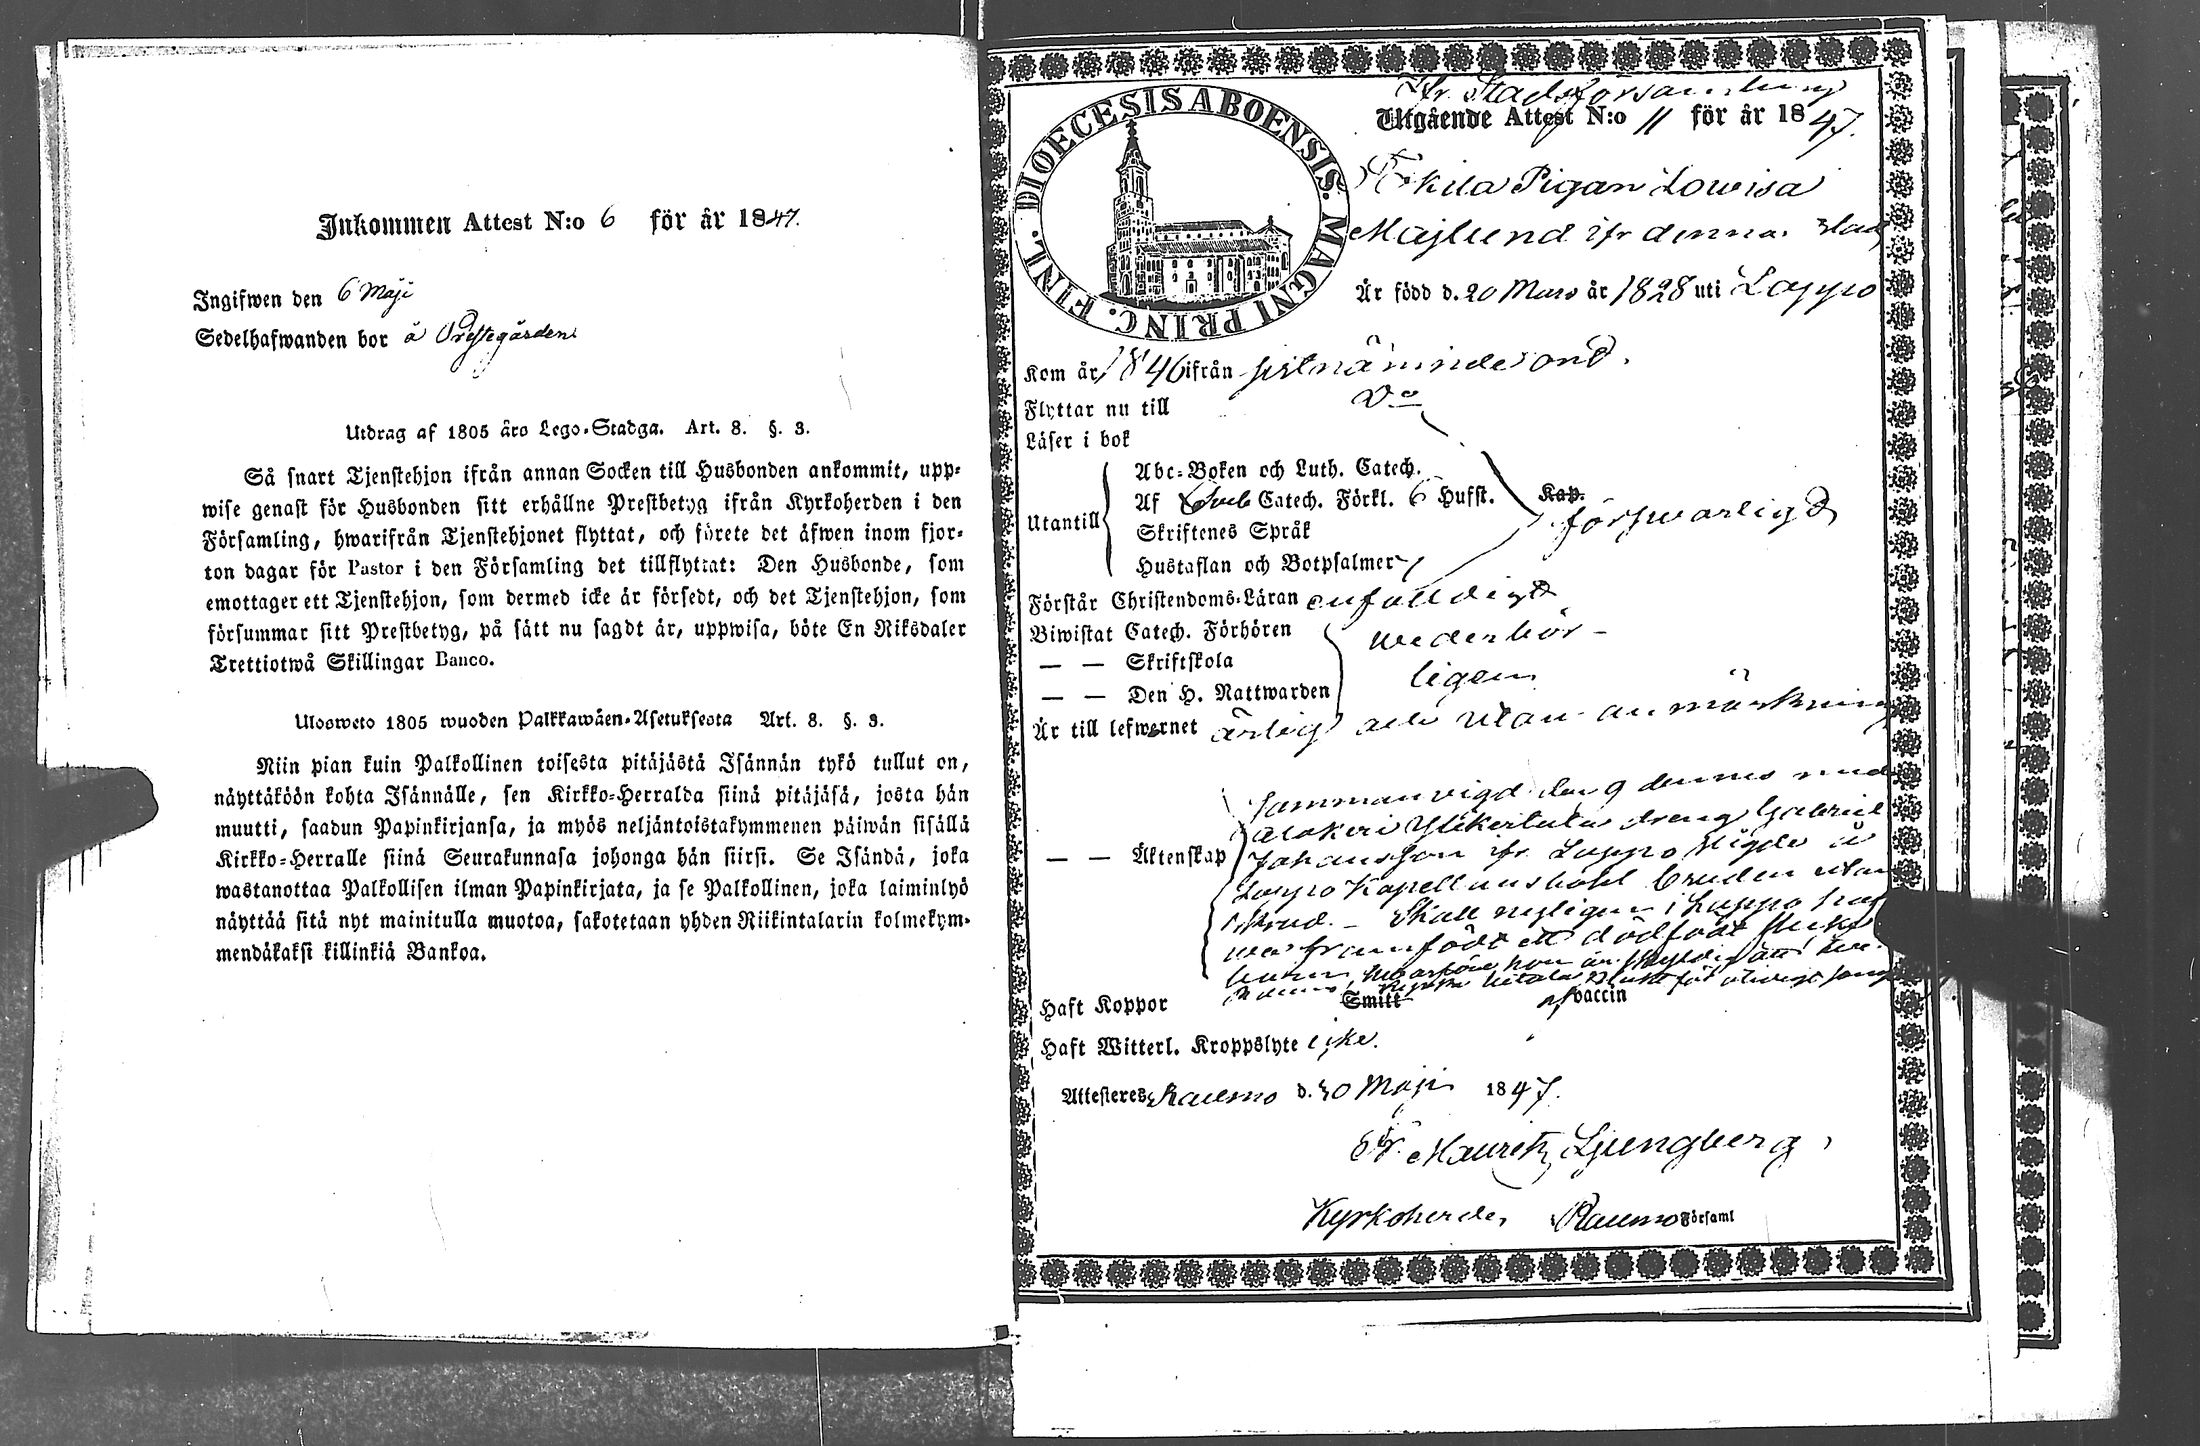 Inkommen Attest N:o 6 för år 1847.
Ingifwen den 6 Maji
Sedelhafwanden bor å Prestegården
Utdrag af 1805 åro Lego-Stadga. Art. 8. §. 3.
Så snart Tjenstehjon ifrån annan Socken till Husbonden ankommit, upp-
wise genast för Husbonden sitt erhållne Prestbetyg ifrån Kyrkoherden i den
Församling, hwarifrån Tjenstehjonet flyttat, och förete det äfwen inom fjor-
ton dagar för Pastor i den Församling det tillflyttat: Den Husbonde, som
emottager ett Tjenstehjon, som dermed icke är försedt, och det Tjenstehjon, som
försummar sitt Prestbetyg, på sätt nu sagdt är, uppwisa, böte En Riksdaler
Trettiotwå Skillingar Banco.
Ulosweto 1805 wuoden Palkkawäen-Asetuksesta Art. 8. §. 3.
Niin pian kuin Palkollinen toisesta pitäjästä Isännän tykö tullut on,
näyttäköön kohta Isännälle, sen Kirkko-Herralda siinä pitäjäsä, josta hän
muutti, saadun Papinkirjansa, ja myös neljäntoistakymmenen päiwän sisällä
Kirkko-Herralle siinä Seurakunnasa johonga hän siirsi. Se Isändä, joka
wastanottaa Palkollisen ilman Papinkirjata, ja se Palkollinen, joka laiminlyö
näyttää sitä nyt mainitulla muotoa, sakotetaan yhden Riikintalarin kolmekym-
mendäkaksi killinkiä Bankoa.
DIOECESIS ABOENSIS. MAGNI PRINC. FINL.
ifr. Stadsförsamling
Utgående Attest N:o 11 för år 1847.
Pigan Lowisa
Majlund ifr denna Stad
Är född d. 20 Mars år 1828 uti Lappo
Kom år 1846 ifrån sistnämnde ord.
Flyttar nu till Do
Läser i bok
Utantill
Abc-Boken och Luth. Catech.
Af Catech. Förkl. 6 Hufst. Kap.
Skriftenes Språk
Hustaflan och Botpsalmer
förswarligt
Förstår Christendoms-Läran enfaldigt
Biwistat Catech. Förhören
— — Skriftskola
— — Den H. Nattwarden
wederbör-
ligen
Är till lefwernet ärlig och utan anmärkning
— — Äktenskap
Sammanvigd den 9 dennes med
dreng Gabriel
Johansson ifr. Lappo
Lappo Kapellansbohl bruden utan
Skall nyligen i Lappo
framfödt ett dödfödt
hwarföre hon är skyldig att
Haft Koppor Smitt af vaccin
Haft Witterl. Kroppslyte icke.
Attesteres Raumo d. 30 Maji 1847.
Fr. Mauritz Ljungberg
Kyrkoherde, Raumo Församl